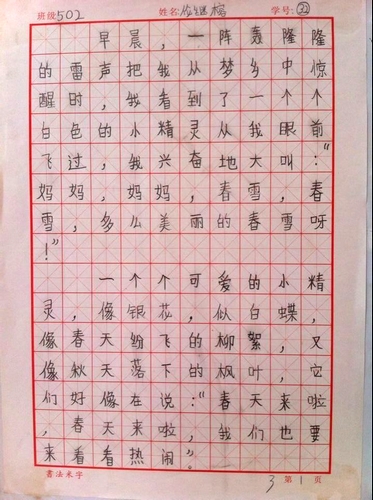 班级502 姓名: 学号:㉒
早晨,一阵轰隆隆
的雷声把我从梦乡中惊
醒时,我看到了一个个
白色的小精灵从我眼前
飞过,我兴奋地大叫:“
妈妈,妈妈,春雪,春
雪,多么美丽的春雪呀
!”
一个个可爱的小精
灵,像银花,似白蝶,
像春天纷飞的柳絮,又
像秋天落下的枫叶,它
们好像在说:“春天来啦
,春天来啦,我们也要
来看看热闹”。
書法米字 3 第1页